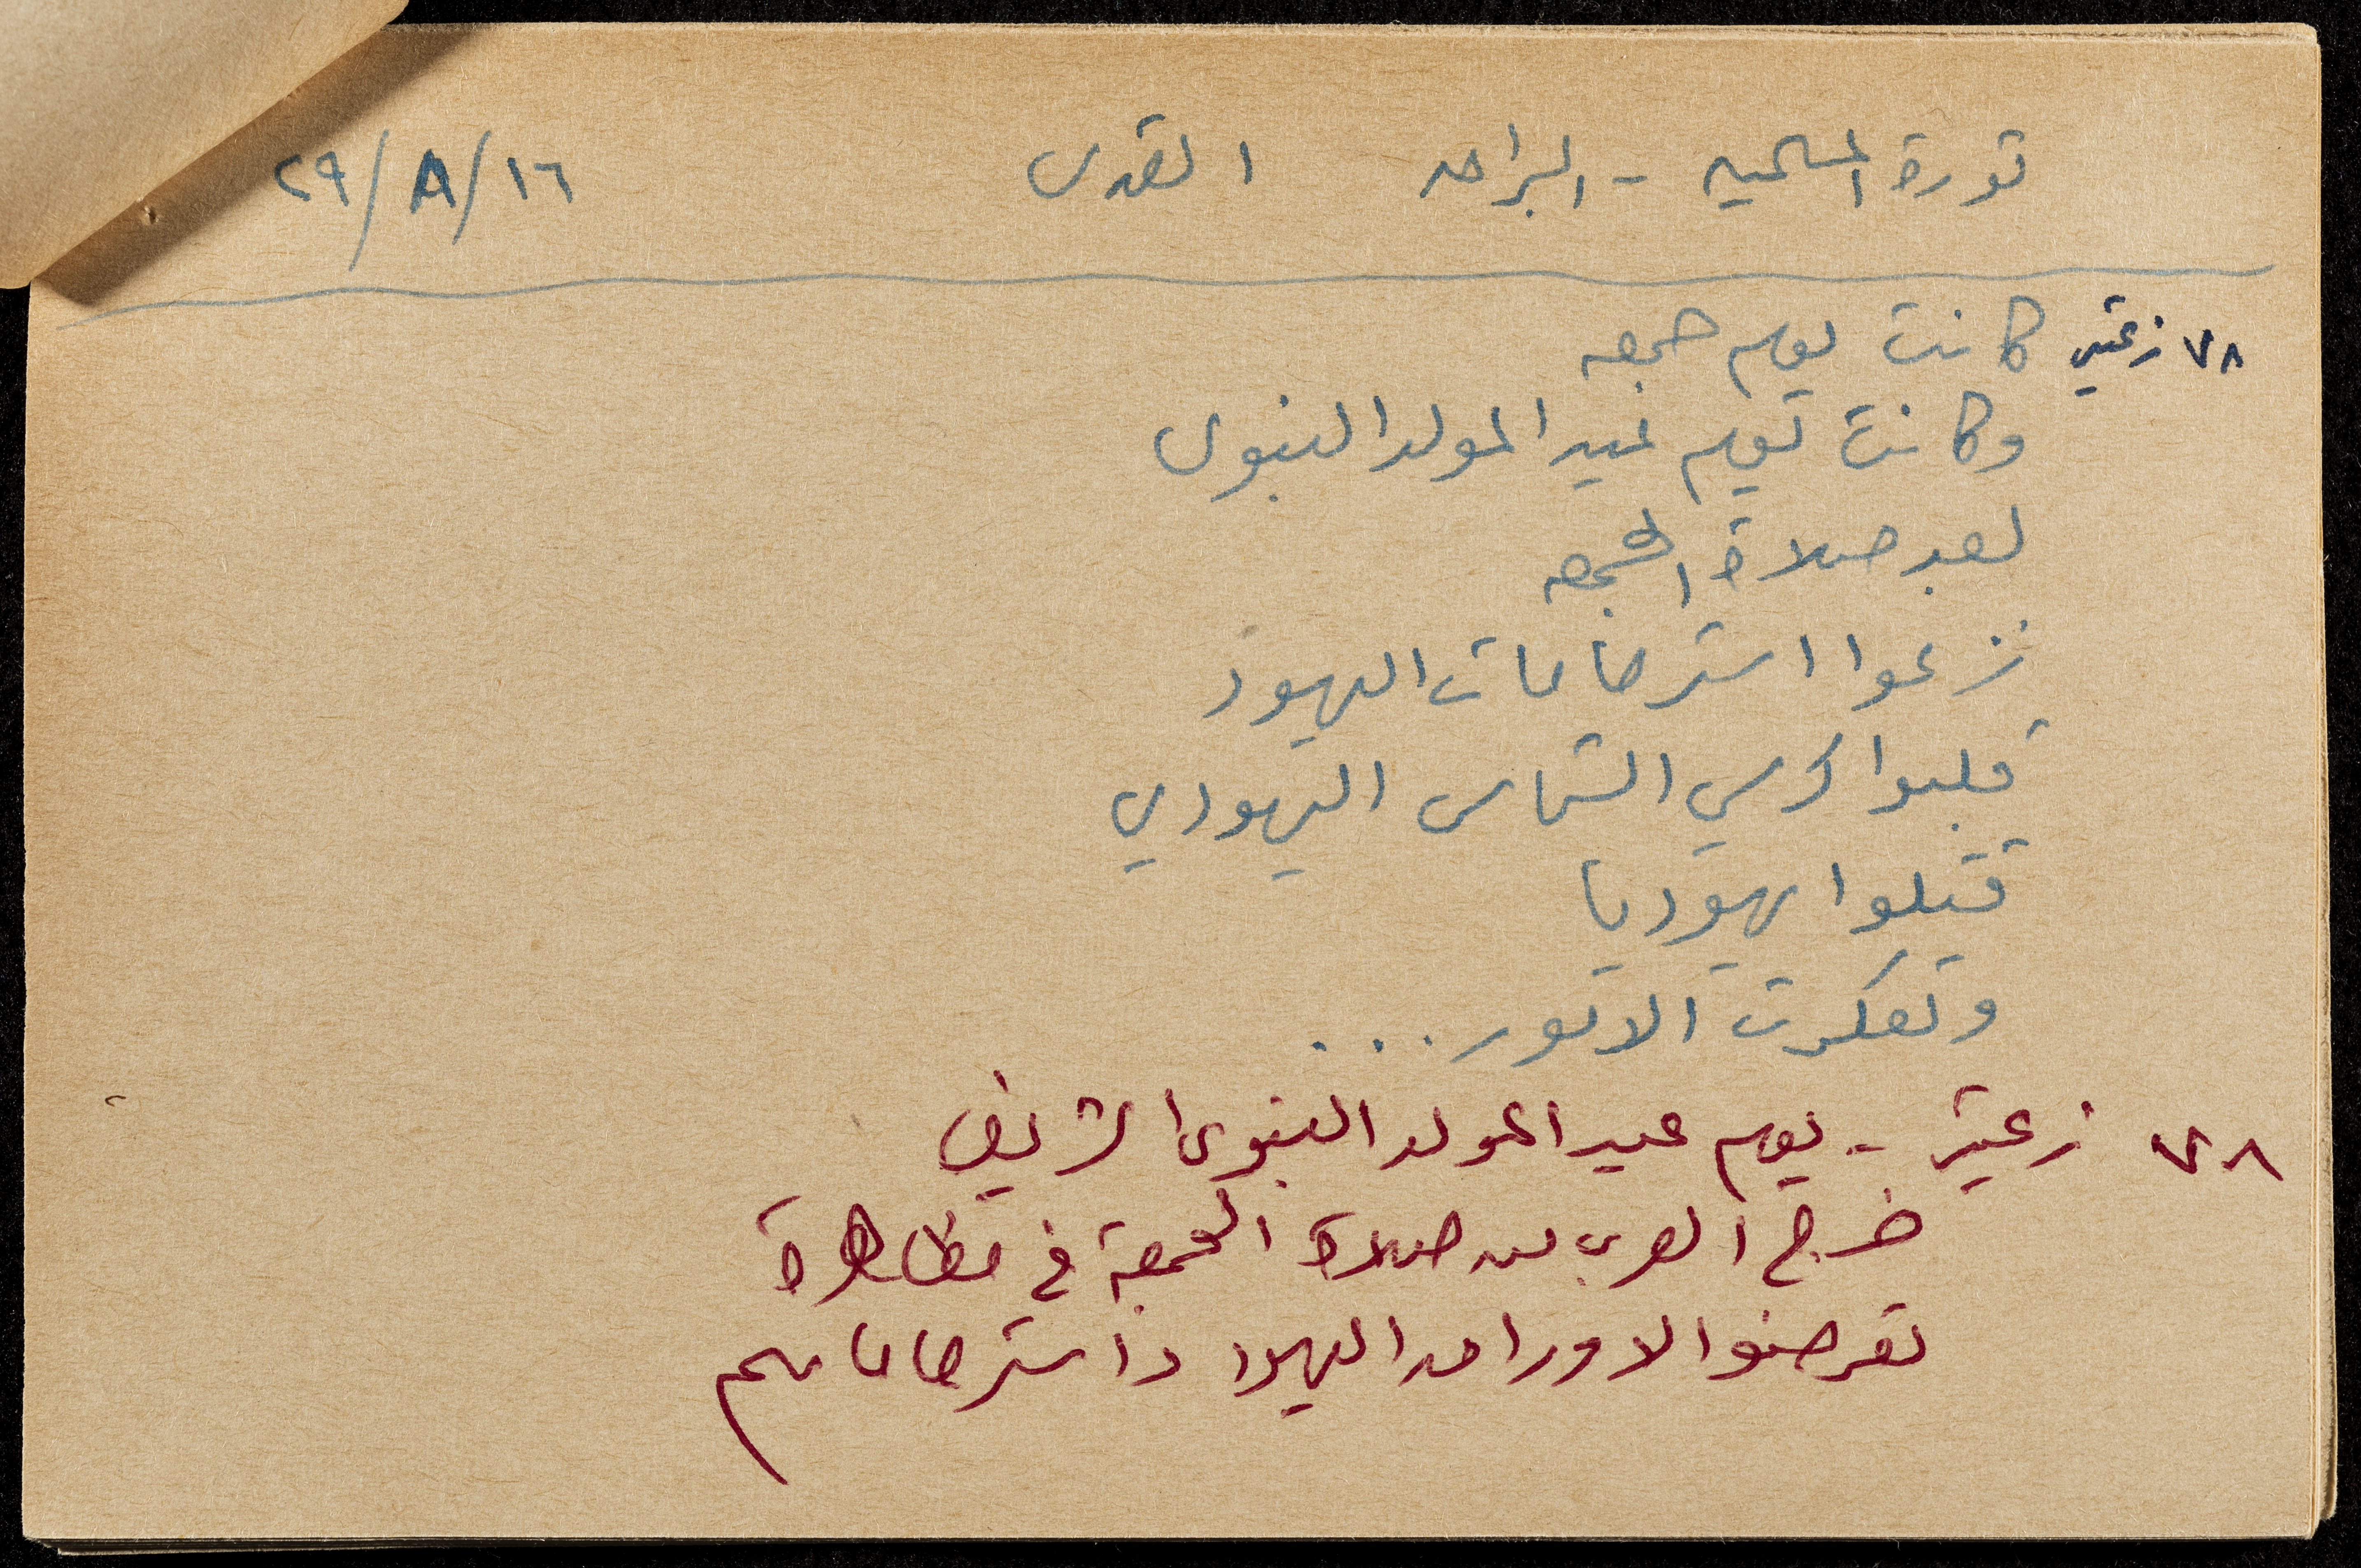 ثورة المسلمين - البراق القدس ١٦/٨/٢٩
٧٨ زعيتر كانت يوم جمعه
وكانت يوم عيد المولد النبوى
بعد صلاة الجمعه
نزعوا استرحامات اليهود
قلبوا كرسي الشماس اليهودي
قتلوا يهوديا
وتعكرت الامور...
٧٨ زعيتر - يوم عيد المولد النبوى الشريف
خرج العرب من صلاة الجمعة في مظاهرة
تعرضوا لاوراق اليهود واسترحاماتهم